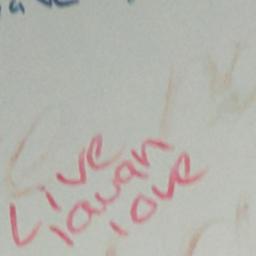 Live
lauan
love